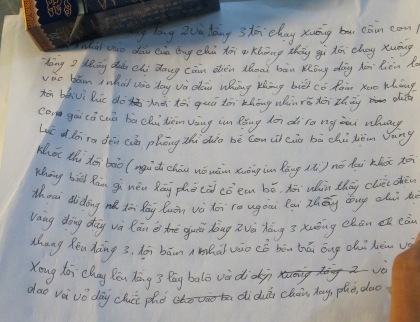 tầng 2 và tầng 3 tôi chạy xuống cầm con
1 nhát vào đầu của ông chủ tôi không thấy gì tôi chạy xuống
tầng 2 thấy đứa chị đang cầm điện thoại bàn không dây tôi liền
vào băm 1 nhát vào tay và đầu nhưng không biết có làm sao không
tôi bởi vì lúc đó trời tối quá tôi không nhìn rõ tôi thấy
con gái cả của bà chủ tiệm vàng im lặng tôi đi ra ngoài nhưng
lúc tôi ra đến cửa phòng thì đứa bé con út của bà chủ tiệm vàng
khóc thì tôi bảo (ngủ đi cháu nó nằm xuống im lặng 1 tí) nó lại khóc tôi
không biết làm gì nên lấy phớ cắt cổ em bé. tôi nhìn thấy chiếc điện
thoại di động tôi lấy luôn và tôi ra ngoài lại thấy ông chủ tiệm
vàng động đậy và lăn ở giữa tầng 2 và tầng 3 xuống chân cầu
thang lên tầng 3. tôi băm 1 nhát vào cổ bên trái ông chủ tiệm
Xong tôi chạy lên tầng 3 lấy balô và đi xuống tầng 2 và
dao và vỏ đầy chiếc phớ đi dưới chân, tay, phớ, dao